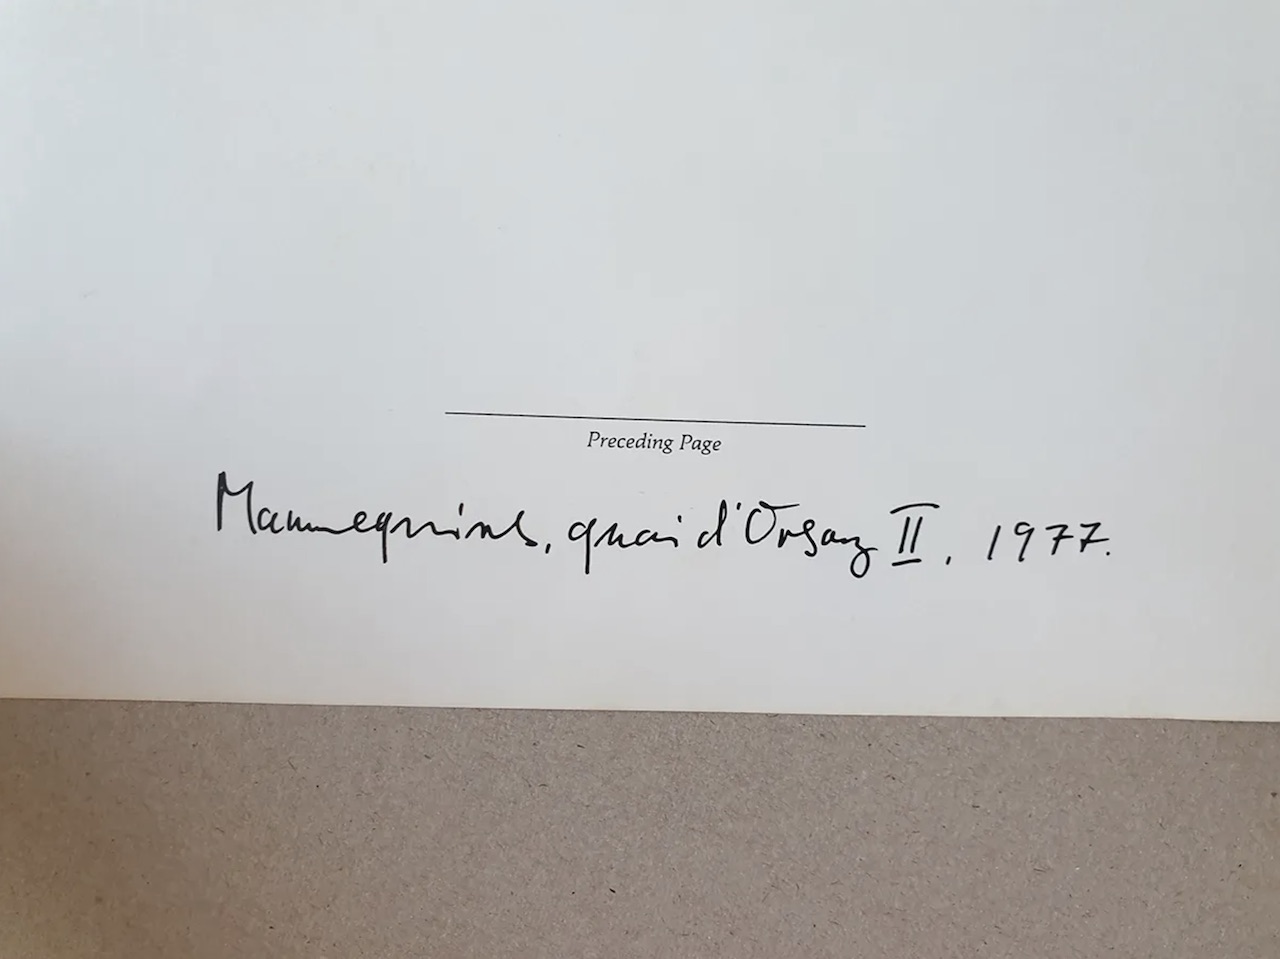 Preceding Page
Mannequins, quai d'Orsay II, 1977.